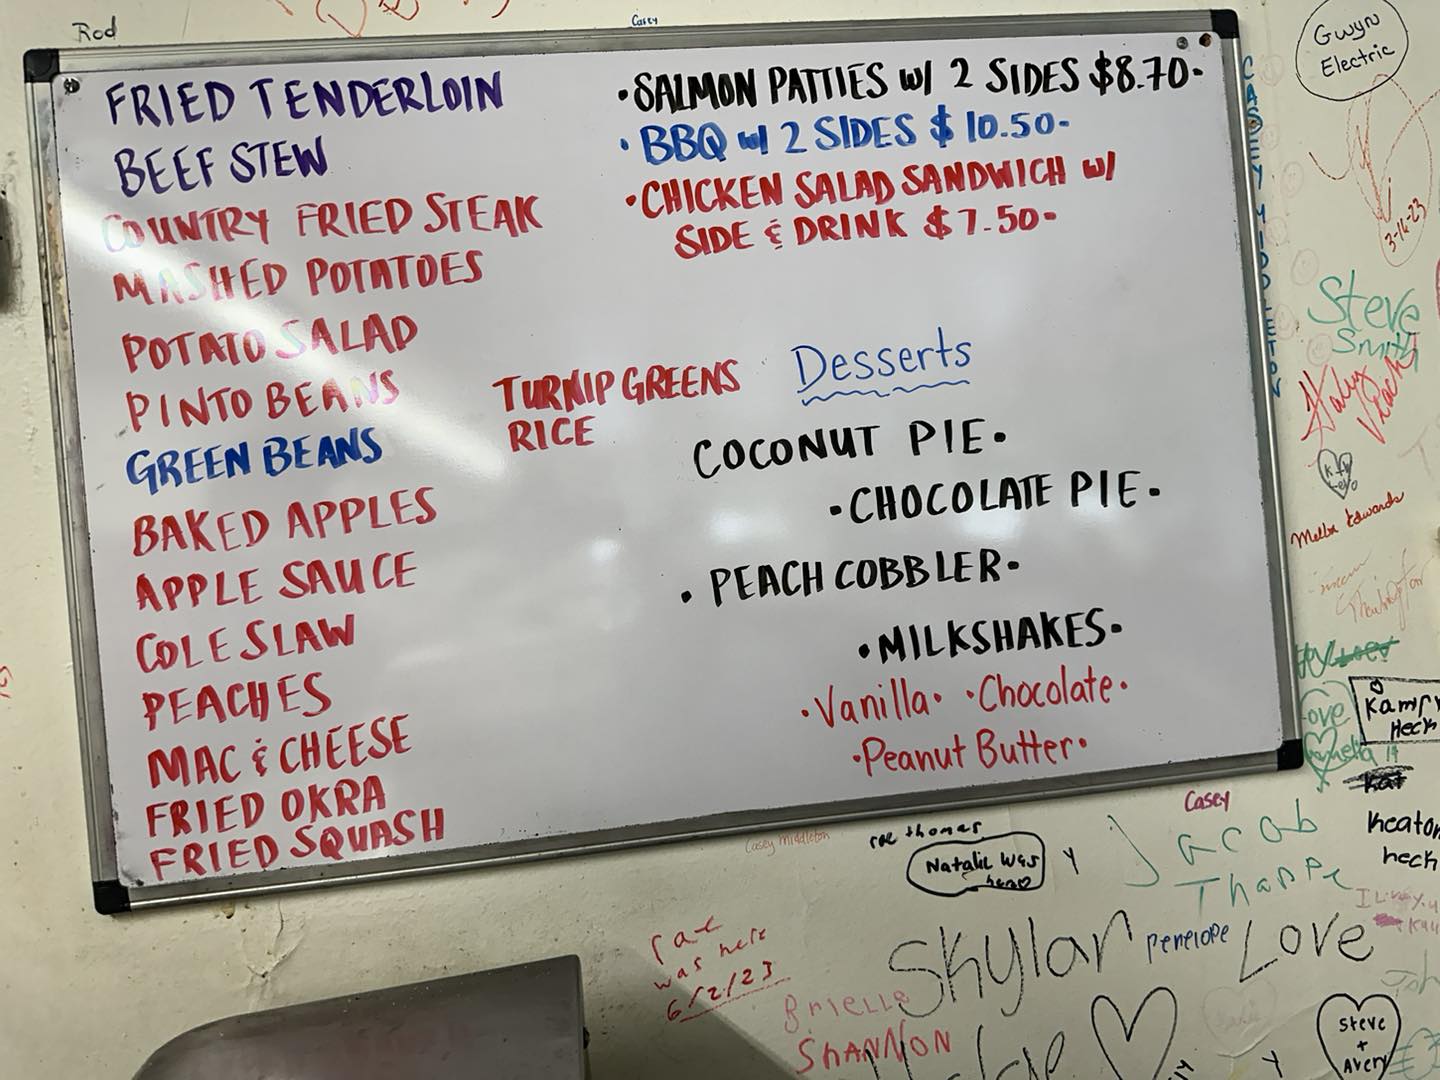 Rod
Casey
FRIED TENDERLOIN
BEEF STEW
COUNTRY FRIED STEAK
MASHED POTATOES
POTATO SALAD
PINTO BEANS
GREEN BEANS
BAKED APPLES
APPLE SAUCE
COLE SLAW
PEACHES
MAC & CHEESE
FRIED OKRA
FRIED SQUASH
TURNIP GREENS
RICE
•SALMON PATTIES W/ 2 SIDES $8.70•
•BBQ W/ 2 SIDES $10.50•
•CHICKEN SALAD SANDWICH W/
SIDE & DRINK $7.50•
Desserts
COCONUT PIE•
•CHOCOLATE PIE•
•PEACH COBBLER•
•MILKSHAKES•
•Vanilla• •Chocolate•
•Peanut Butter•
CASEY MIDDLETON
Gwyn
Electric
3-16-23
Steve
Smith
Melba Edwards
Love
Kampr
Heck
Kat
Keaton
heck
Casey
Casey Middleton
rae thomas
Natalie was
here
Y
Jacob
Tharpe
rae
was here
6/2/23
Skylar
Penelope
Love
Brielle
SHANNON
Steve
+
Avery